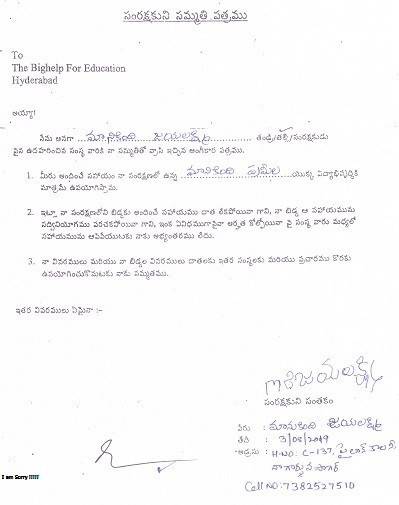 సంరక్షకుని సమ్మతి పత్రము
To
The Bighelp For Education
Hyderabad
అయ్యా!
నేను అనగా ... జయలక్ష్మి ... తండ్రి/తల్లి/సంరక్షకుడు
పైన ఉదహరించిన సంస్థ వారికి నా సమ్మతితో వ్రాసి ఇచ్చిన అంగీకార పత్రము.
1. మీరు అందించే సహాయం నా సంరక్షణలో ఉన్న ... యొక్క విద్యాభివృద్ధికి
మాత్రమే ఉపయోగిస్తాను.
2. ఇట్లా నా సంరక్షణలోని బిడ్డకు అందించే సహాయము దాత లేకపోయినా గాని, నా బిడ్డ ఆ సహాయమును
సద్వినియోగము పరచకపోయినా గాని, ఇంక ఏవిధముగానైనా అర్హత కోల్పోయినా పై సంస్థ వారు మధ్యలో
సహాయమును ఆపివేయుటకు నాకు అభ్యంతరము లేదు.
3. నా వివరములు మరియు నా బిడ్డల వివరములు దాతలకు ఇతర సంస్థలకు మరియు ప్రచారము కొరకు
ఉపయోగించుకొనుటకు నాకు సమ్మతము.
ఇతర వివరములు ఏమైనా :-
సంరక్షకుని సంతకం
పేరు : జయలక్ష్మి
తేది : 3/08/2019
అడ్రసు : H.NO. C-137, పైలాన్ కాలనీ
నాగార్జున సాగర్
Cell NO: 7382527510
I am Sorry !!!!!